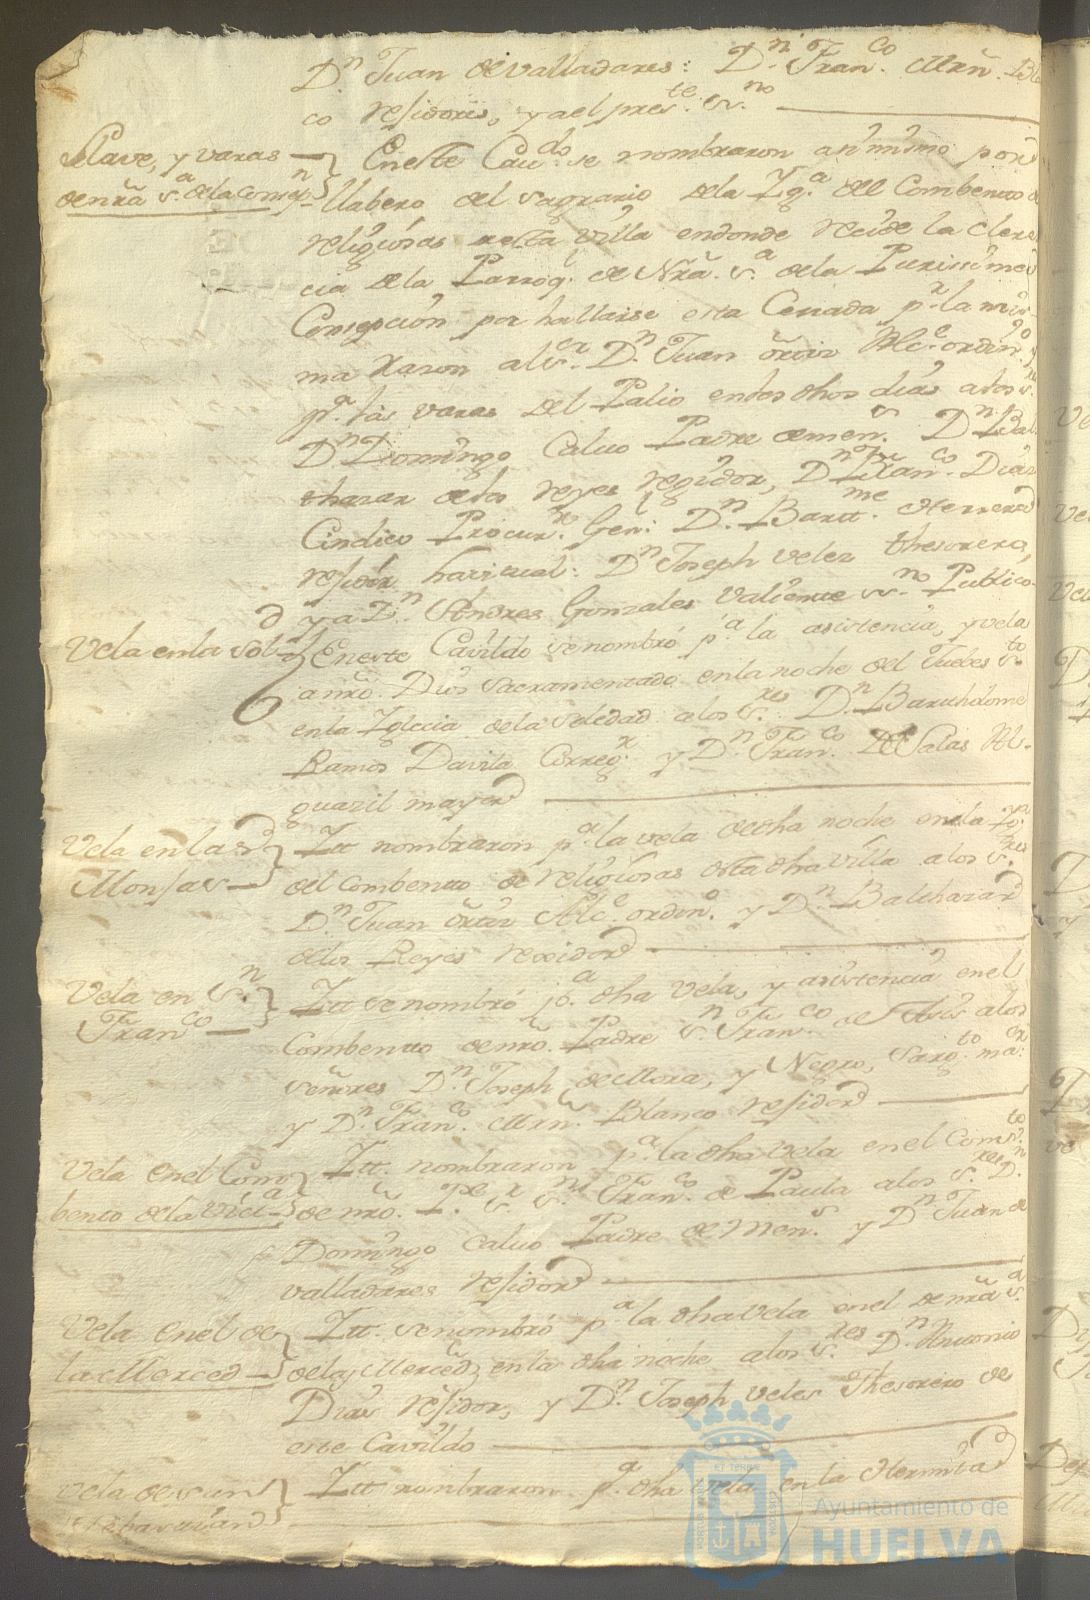 Dn. Juan de Valladares: Dn. Franco. Mrn. Blan
co residores, y a el preste. ssno.
Llave, y varas
de nrã sa. de la Consepn
En este Cavdo. se nombraron asimismo por
llabero del sagrario de la Iga. del Combento de
religiosas desta villa endonde recide la clere
cia de la Parroql. de Nrã. sa. de la Purissima
Consepción por hallarse esta Cerrada pr. la mis
ma Raron al sr. Dn. Juan ortiz Alce. ordino. y
pa. las varas del Palio en los dhos dias a los sres.
Dn Domingo Calvo Padre de mens. Dn. Bal
thazar de los reyes regidor, Dn. Franco. Diaz
Cindico Procurr. Genl: Dn. Barttme. Herrera
residor havitual: Dn Joseph velez thesorero,
y a Dn. Andres Gonzales Valiente ssno. Publico
Vela en la Sold
En este Cavildo se nombró pa. la asistencia, y vela
a nrõ. Dios Sacramentado en la noche del Juebes sto.
en la Iglecia de la soledad a los sres. Dn Bartholome
Ramos Davila Corregr. y Dn. Franco. de Salas Al
guazil mayor
Vela en las
Monjas
Itt nombraron pa. la vela de dha noche en la Iga.
del combento de religiosas desta dha villa a los sres.
Dn Juan ortiz Alce. ordino. y Dn. Balthazar
de los Reyes rexidor
Vela en Sn.
Franco
Itt se nombró pa. dha vela, y asistencia en el
Combento de nro. Padre sn. Franco. de Asis a los
señores Dn. Joseph de Mora, y Negro, sargto. mar.
y Dn. Franco. Mrn. Blanco residor
Vela en el Com
bento de la Victa
Itt. nombraron pa. la dha vela en el Combto.
de nrõ. Pe. sr. sn. Franco. de Paula a los sres. Dn.
Domingo calvo Padre de Mens. y Dn Juan de
valladares residor
Vela en el de
la Merced
Itt. se nombró pa. la dha vela en el de nrã sa.
de las Merced, en la dha noche a los sres. Dn. Antonio
Dias residor, y Dn. Joseph veles Thesorero de
este Cavildo
Vela de san
Sebastian
Itt nombraron pa. dha vela en la Hermita
Ayuntamiento de
HUELVA